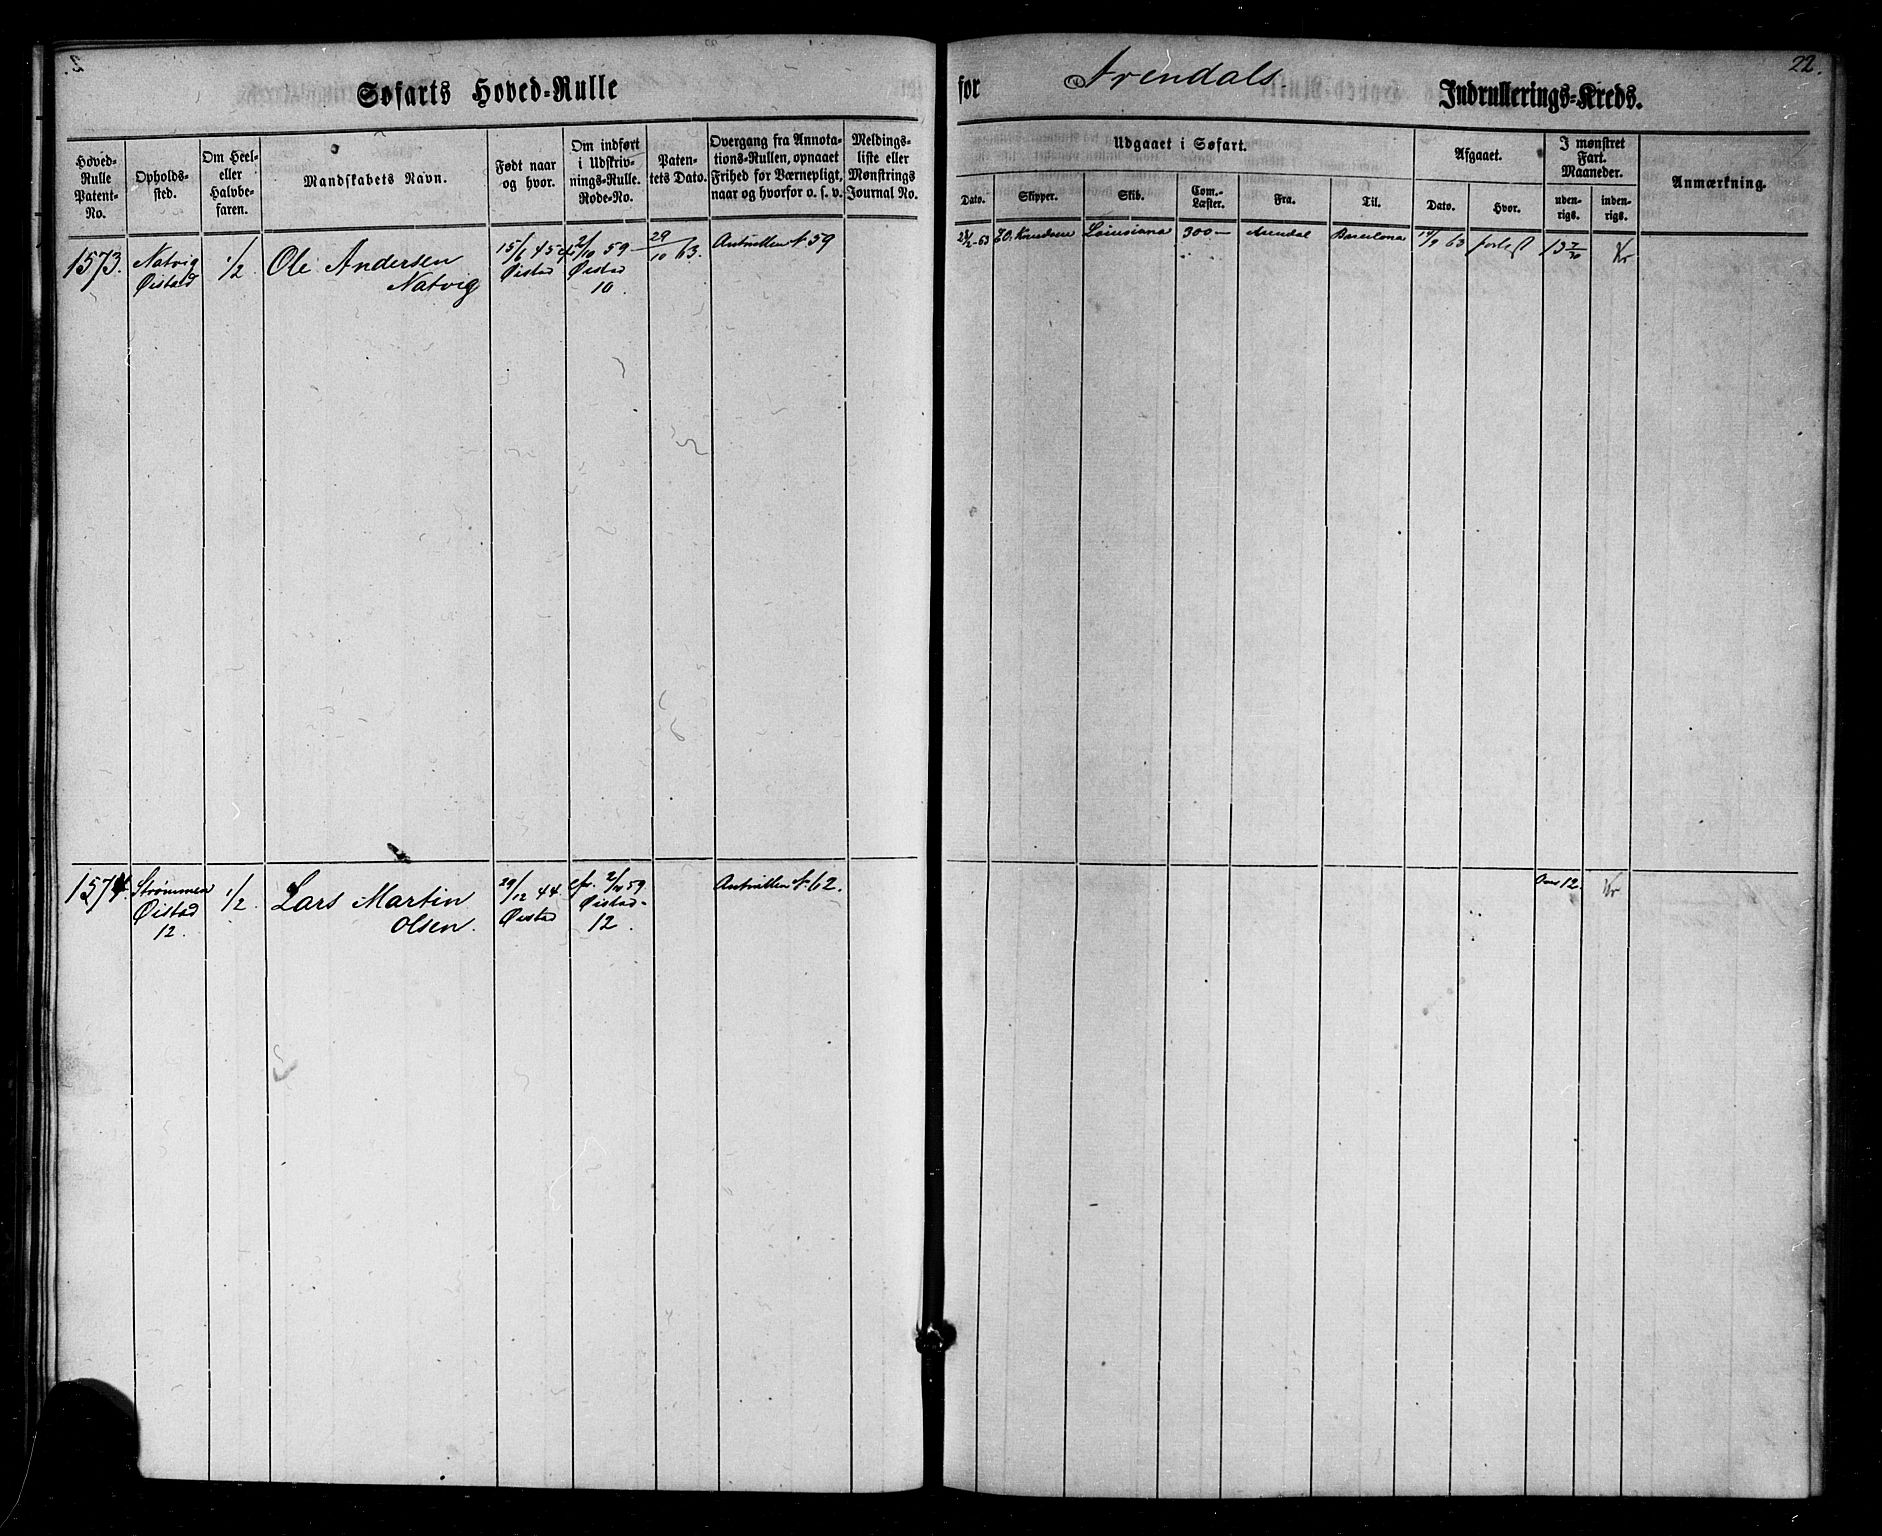 Søfarts Hoved-Rulle for Arendals Indrullerings-Kreds.
22.
Hoved-
Rulle
Patent-
No.
Opholds-
sted.
Om Heel-
eller
Halvbe-
faren.
Mandskabets Navn.
Født naar
og hvor.
Om indført
i Udskriv-
nings-Rulle.
Rode-No.
Paten-
tets Dato.
Overgang fra Annota-
tions-Rullen, opnaaet
Frihed for Værnepligt,
naar og hvorfor o. s. v.
Meldings-
liste eller
Mønstrings
Journal No.
Udgaaet i Søfart.
Dato.
Skipper.
Skib.
Com.-
Læster.
Fra.
Til.
Afgaaet.
Dato.
Hvor.
I mønstret
Fart.
Maaneder.
uden-
rigs.
inden-
rigs.
Anmærkning.
1573.
Natvig
Øistad
1/2
Ole Andersen
Natvig
15/6 45
Øistad
2/10 59
Øistad
10.
29/10 63.
59
63
Knudsen
Louisiana
300
Arendal
Barcelona
63
13
1574.
Strømmen
Øistad
12.
1/2.
Lars Martin
Olsen.
29/12 44.
Øistad
cfr. 2/10 59
Øistad
12.
62.
Over 12.